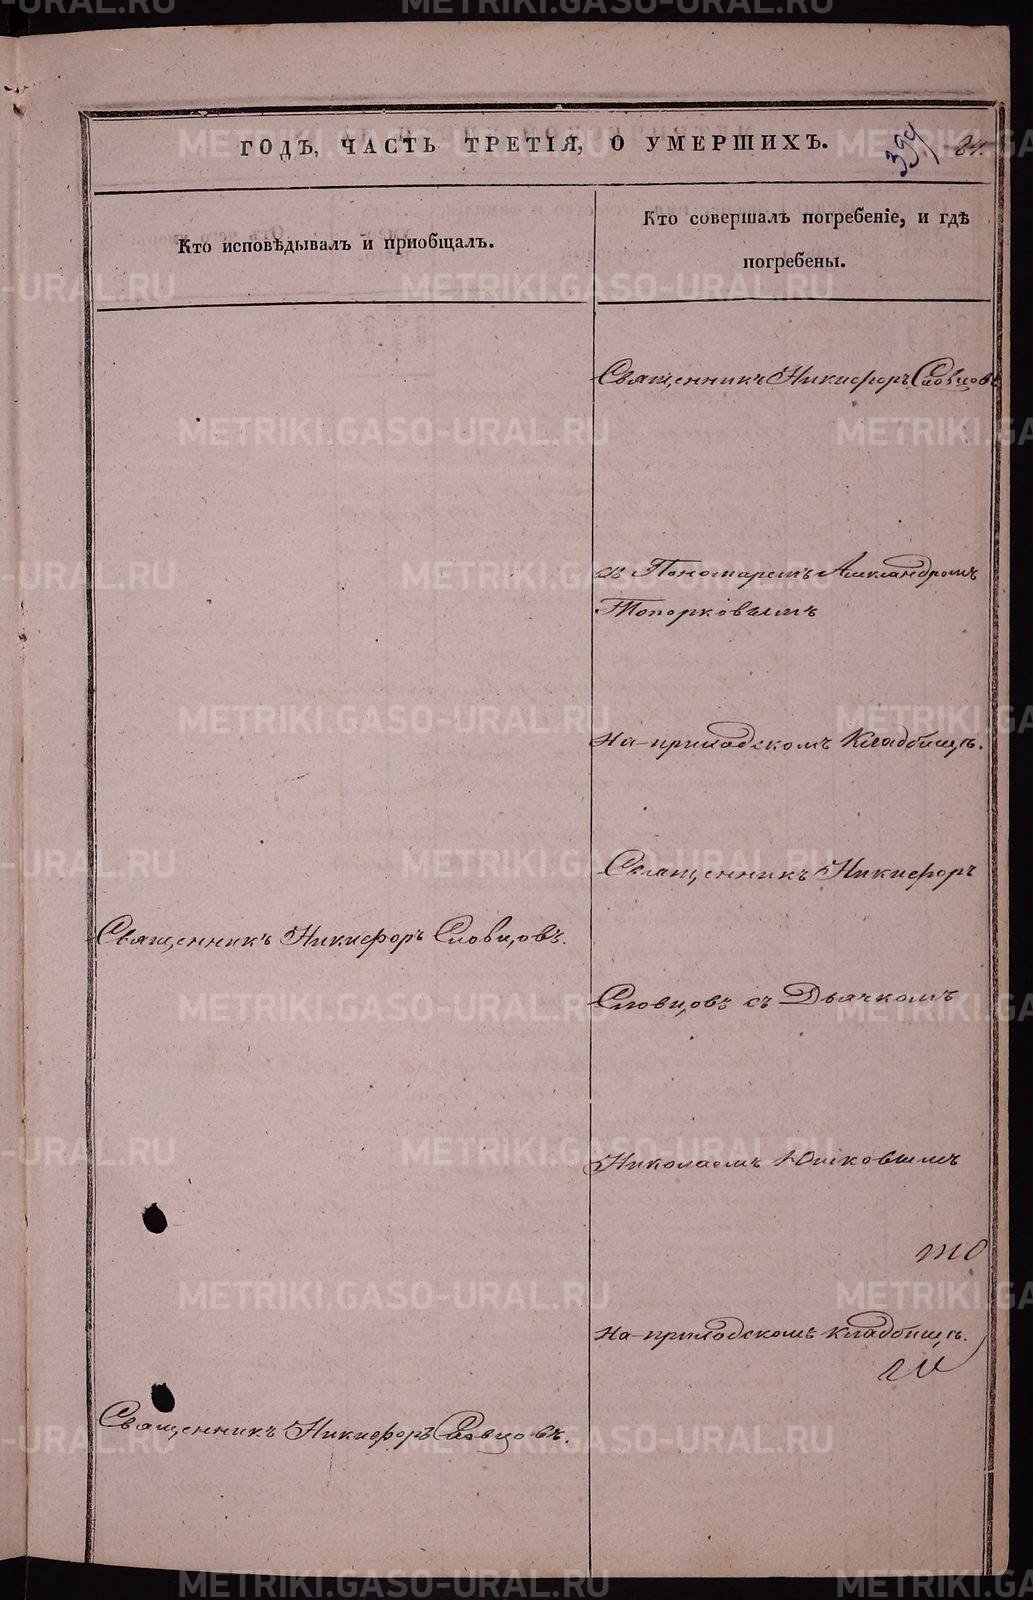 ГОДЪ, ЧАСТЬ ТРЕТІЯ, О УМЕРШИХЪ.
399
84.
Кто исповѣдывалъ и пріобщалъ.
Кто совершалъ погребеніе, и гдѣ
погребены.
Священникъ Никифоръ Словцовъ
съ Пономаремъ Александромъ
Топорковымъ
На приходскомъ Кладбищѣ.
Священникъ Никифоръ
Священникъ Никифоръ Словцовъ.
Словцовъ съ Дьячкомъ
Николаемъ Юшковымъ
на приходскомъ кладбищѣ.
Священникъ Никифоръ Словцовъ.
METRIKI.GASO-URAL.RU